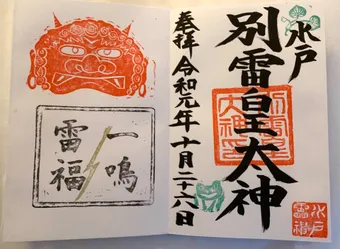 水戸
別雷皇大神
奉拝 令和元年十月二十六日
一鳴
雷福
水戸
雷神